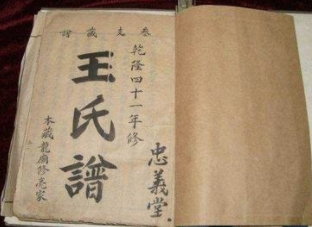 叁支藏譜
乾隆四十一年修
王氏譜
忠義堂
本藏龍廟修亮家